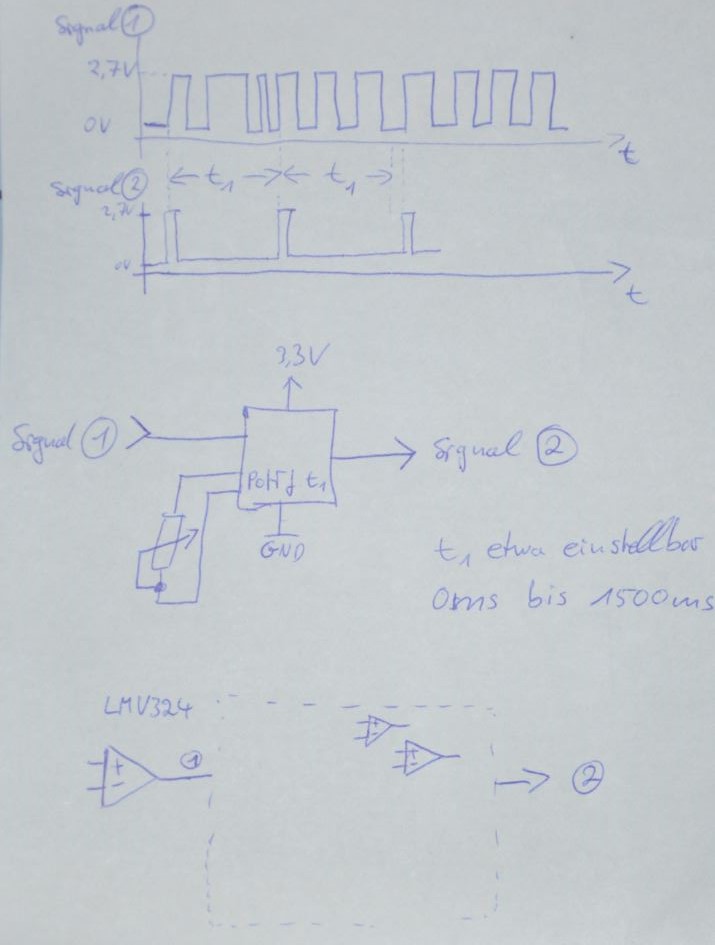 Signal ①
2,7V
0V
t
← t₁ → ← t₁ →
Signal ②
2,7V
0V
t
3,3V
Signal ①
Signal ②
Poti f t₁
GND
t₁ etwa einstellbar
0ms bis 1500ms
LMV324
+
-
①
+
-
+
-
②